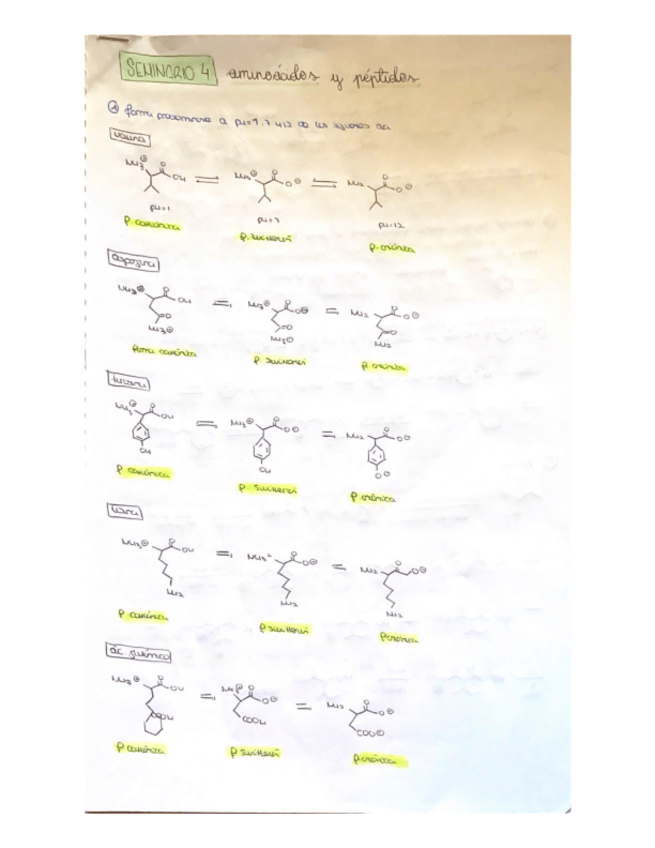 SEMINARIO 4 aminoácidos y péptidos
forma predominante a pH=1, 7 y 12 de los siguientes aa
valina
NH3⊕ O OH ⇌ NH3⊕ O O⊖ ⇌ NH2 O O⊖
pH=1 pH=7 pH=12
F. catiónica F. zwitterión F. aniónica
NH3⊕ O OH ⇌ NH3⊕ O O⊖ ⇌ NH2 O O⊖
=O =O =O
NH3⊕ NH3⊕ NH2
forma catiónica F. zwitterión F. aniónica
tirosina
NH3⊕ O OH ⇌ NH3⊕ O O⊖ ⇌ NH2 O O⊖
OH OH O⊖
F catiónica F. zwitterión F aniónica
lisina
NH3⊕ O OH ⇌ NH3⁺ O O⊖ ⇌ NH2 O O⊖
NH2 NH2 NH2
F catiónica F zwitterión F aniónica
ác
NH3⊕ O OH ⇌ O O⊖ ⇌ NH2 O O⊖
COOH COOH COO⊖
F catiónica F zwitterión F aniónica